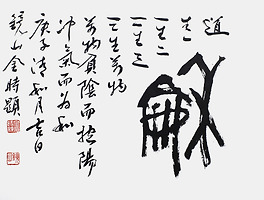 龢
道
生一
一生二
二生三
三生萬物
萬物負陰而抱陽
沖氣而為和
庚子清和月吉日
鏡山金時